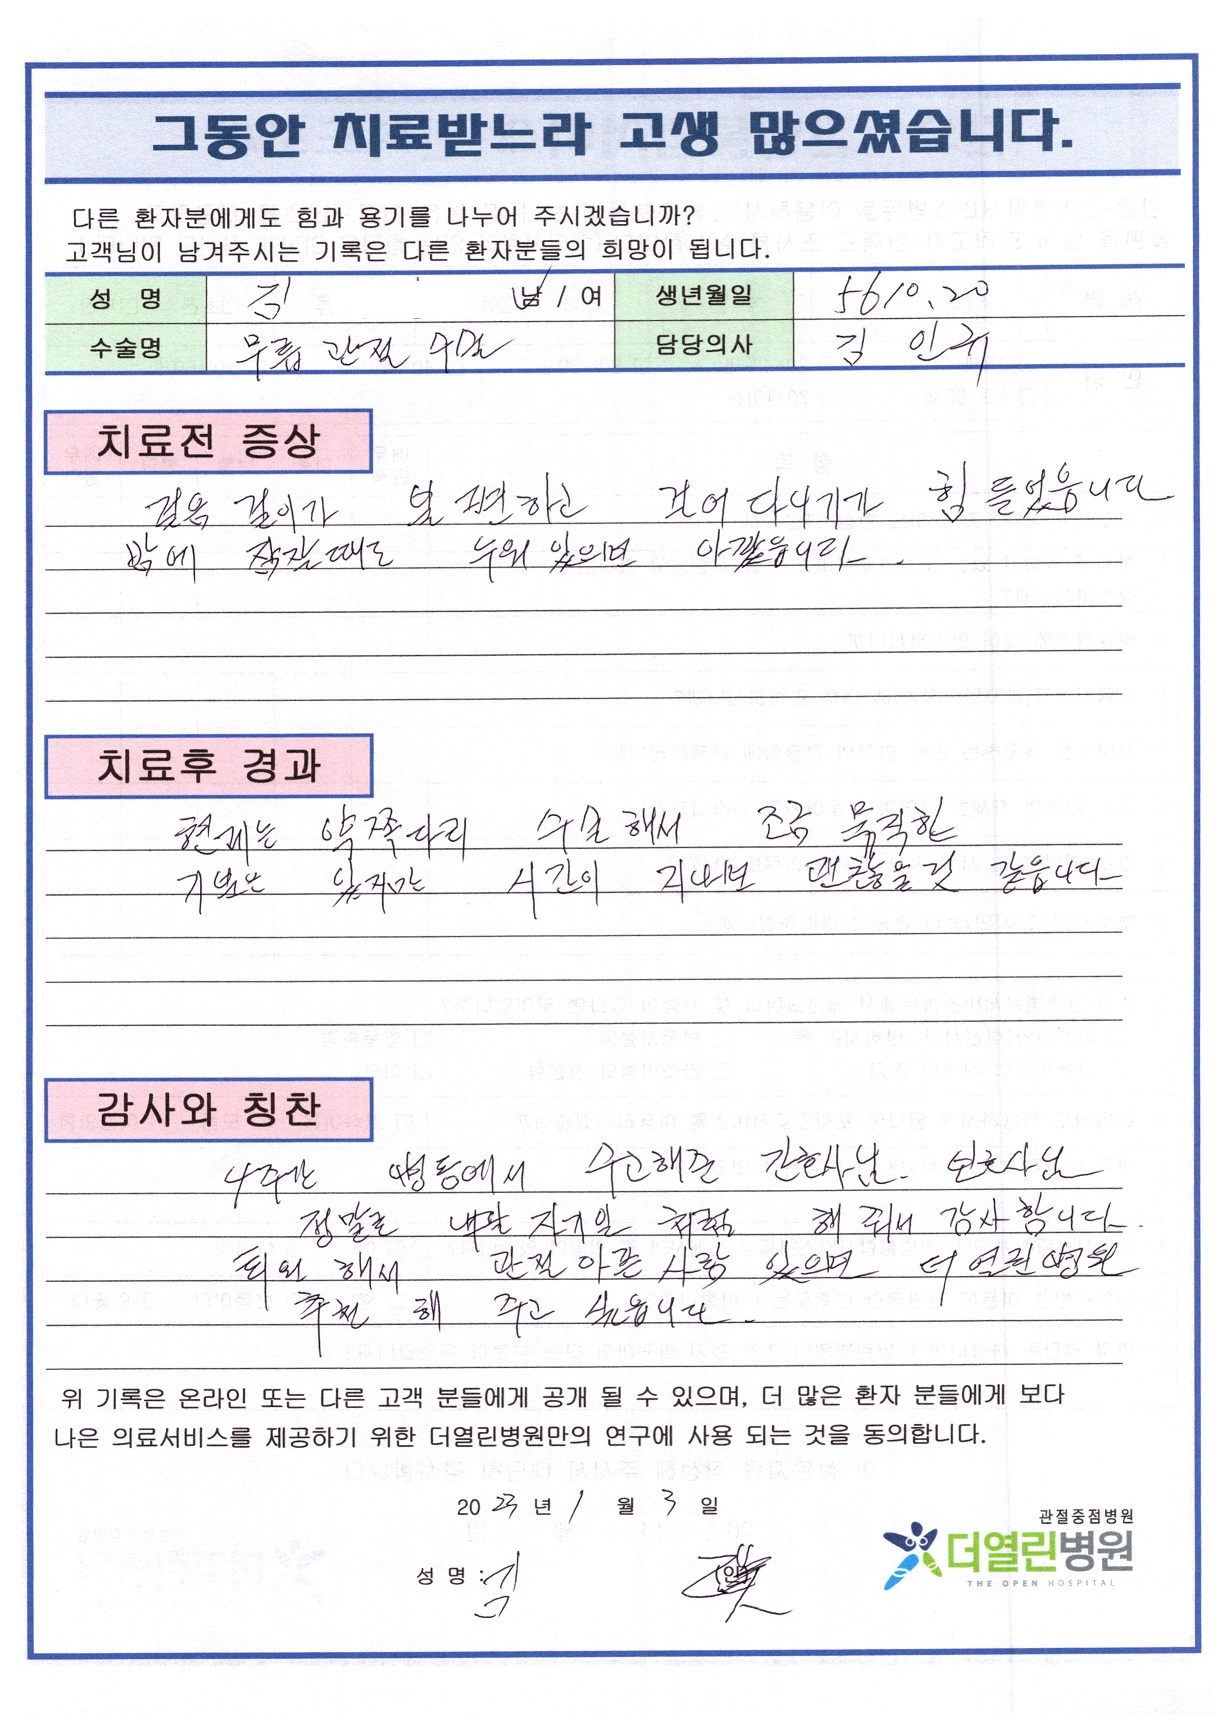 그동안 치료받느라 고생 많으셨습니다.
다른 환자분에게도 힘과 용기를 나누어 주시겠습니까?
고객님이 남겨주시는 기록은 다른 환자분들의 희망이 됩니다.
성 명 김 남 / 여 생년월일 5610.20
수술명 무릎 관절 수술 담당의사 김 인규
치료전 증상
걸음 걸이가 불편하고 걸어 다니기가 힘들었읍니다
밖에 잠잘때도 누워 있으면 아팠읍니다.
치료후 경과
현재는 양쪽다리 수술해서 조금 묵직한
기분은 있지만 시간이 지나면 괜찮을것 같읍니다
감사와 칭찬
4주간 병동에서 수고해준 간호사님. 보호사님
정말로 내만 자기일 처럼 해 줘서 감사합니다.
퇴원 해서 관절 아픈 사람 있으면 더열린병원
추천 해 주고 싶읍니다.
위 기록은 온라인 또는 다른 고객 분들에게 공개 될 수 있으며, 더 많은 환자 분들에게 보다
나은 의료서비스를 제공하기 위한 더열린병원만의 연구에 사용 되는 것을 동의합니다.
2023 년 1 월 3 일
성 명 : 김 (인)
관절중점병원
더열린병원
THE OPEN HOSPITAL